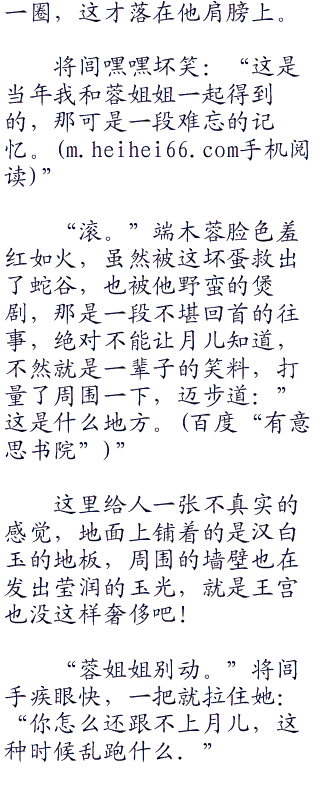 一圈，这才落在他肩膀上。
将闾嘿嘿坏笑：“这是
当年我和蓉姐姐一起得到
的，那可是一段难忘的记
忆。(m.heihei66.com手机阅
读)”
“滚。”端木蓉脸色羞
红如火，虽然被这坏蛋救出
了蛇谷，也被他野蛮的煲
剧，那是一段不堪回首的往
事，绝对不能让月儿知道，
不然就是一辈子的笑料，打
量了周围一下，迈步道：”
这是什么地方。(百度“有意
思书院”)”
这里给人一张不真实的
感觉，地面上铺着的是汉白
玉的地板，周围的墙壁也在
发出莹润的玉光，就是王宫
也没这样奢侈吧！
“蓉姐姐别动。”将闾
手疾眼快，一把就拉住她：
“你怎么还跟不上月儿，这
种时候乱跑什么．”